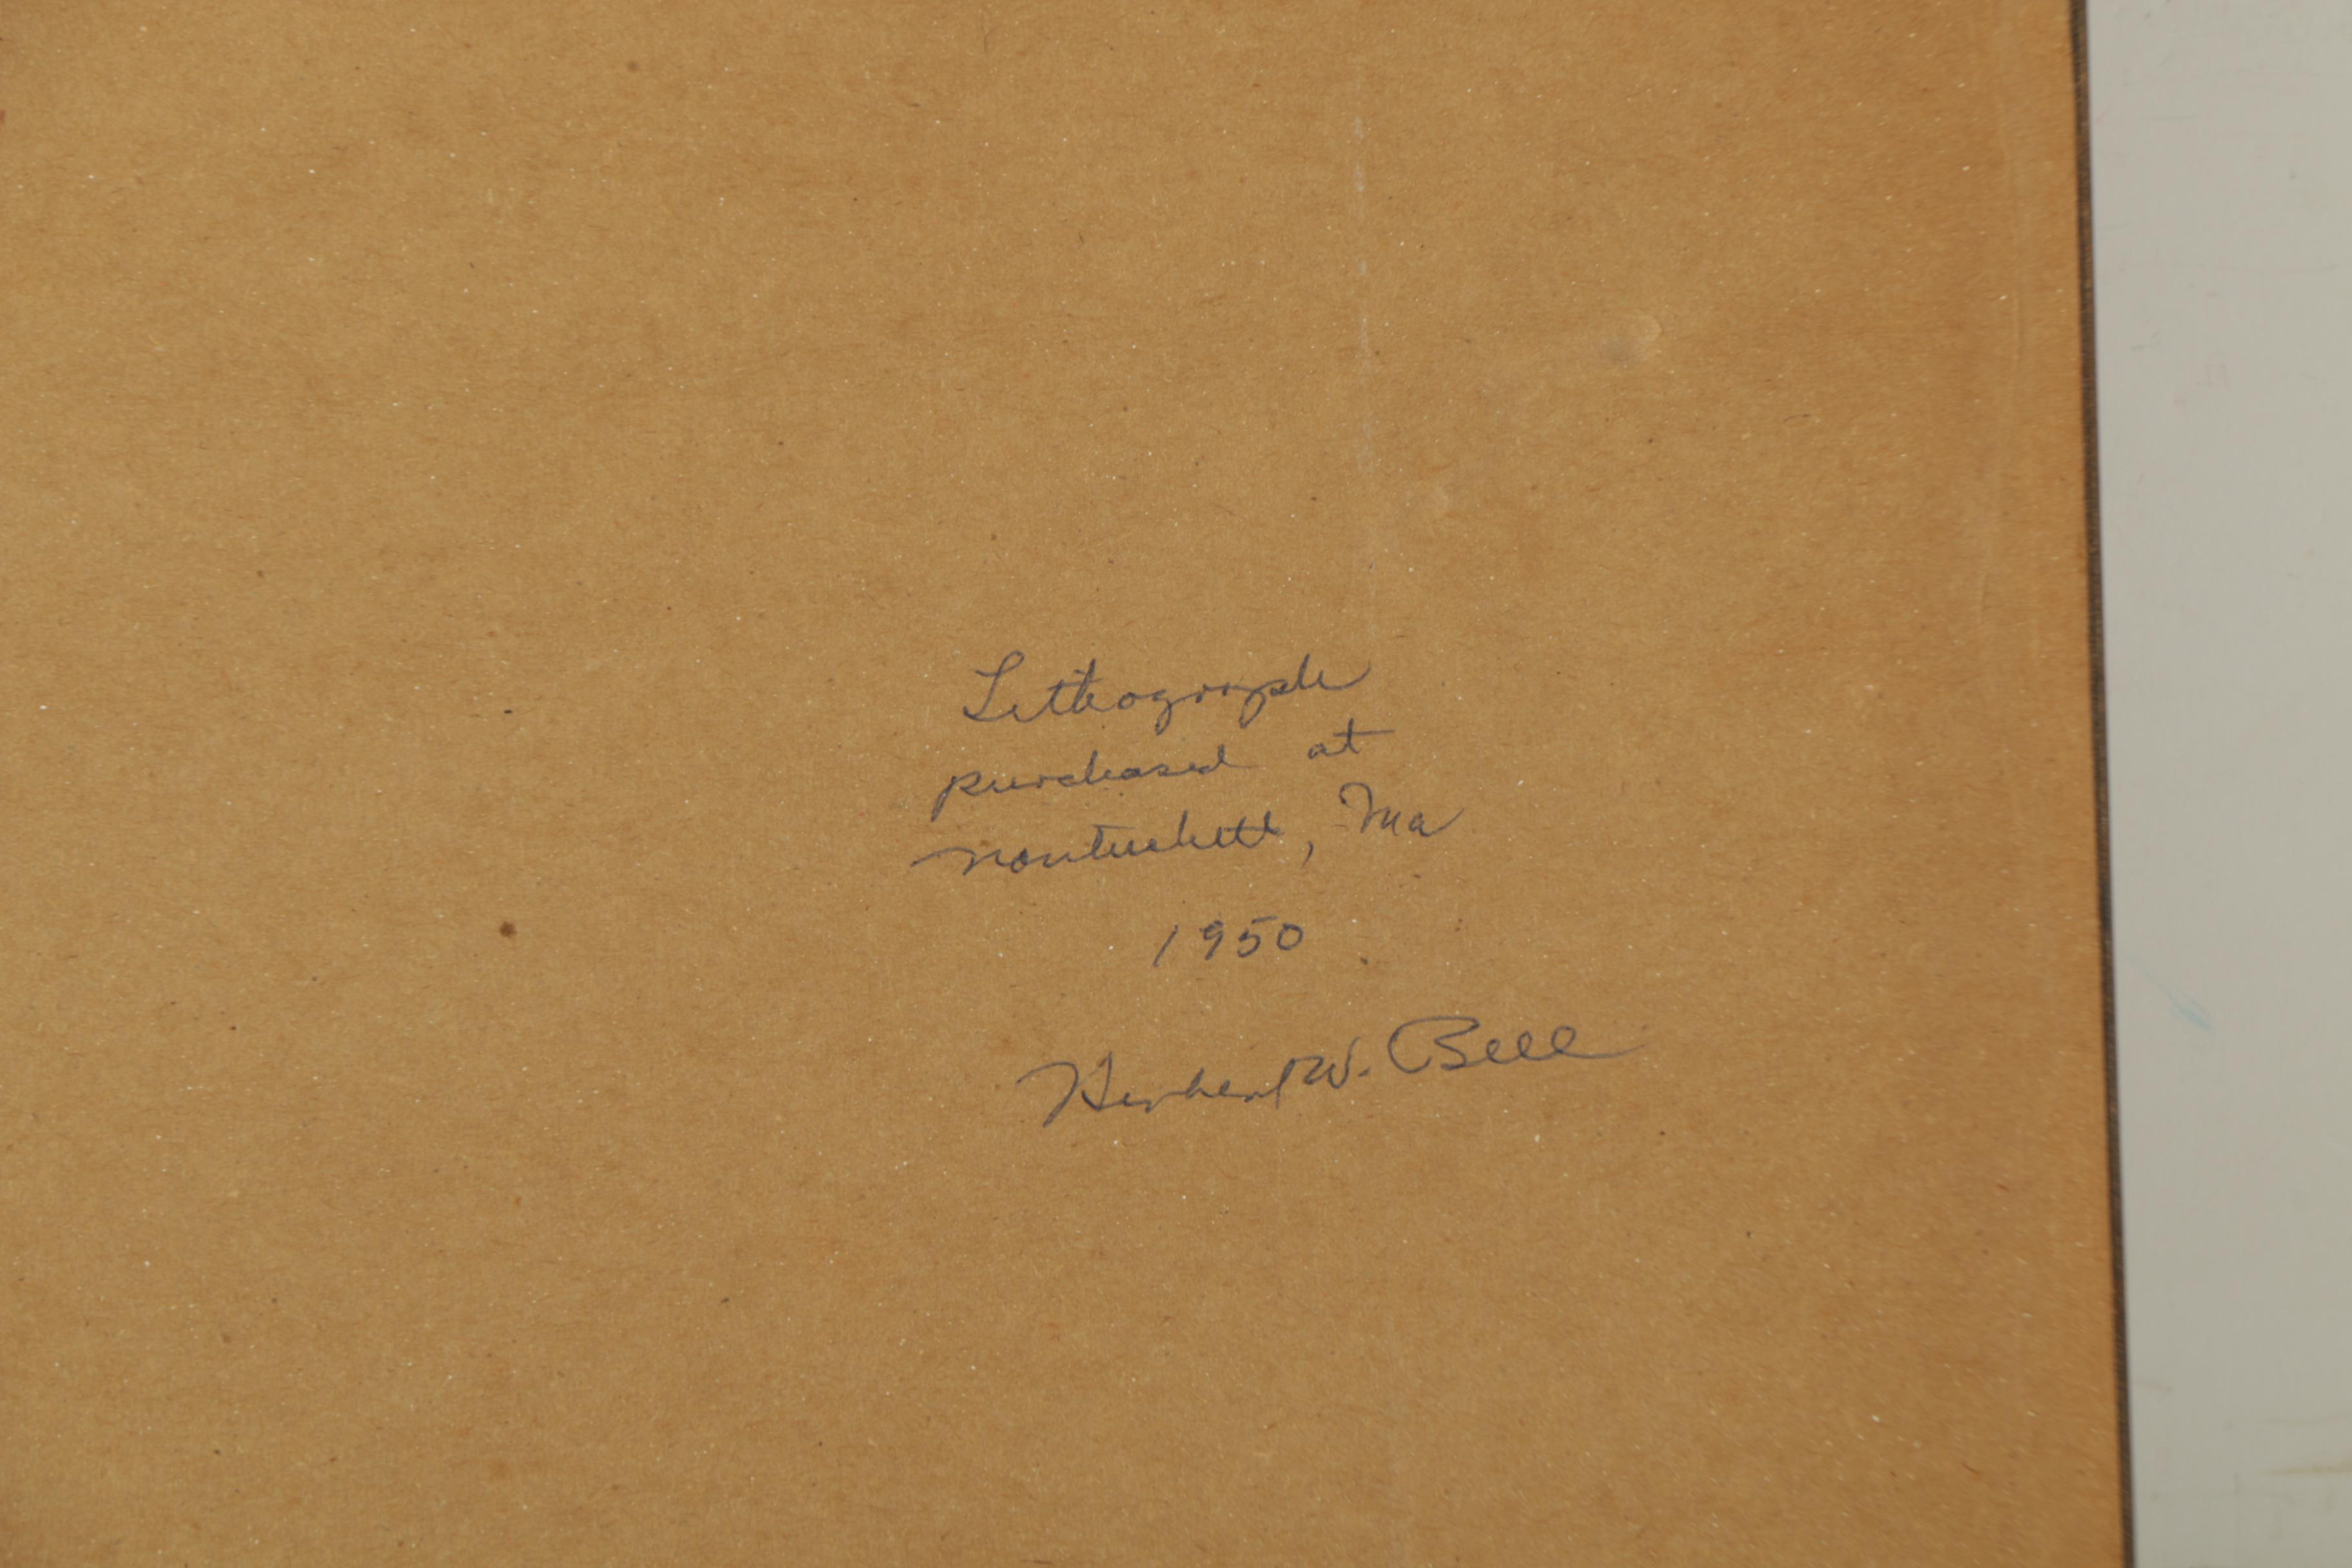 Lithograph
purchased at
Nantuckett, Ma
1950
Herbert W. Bell